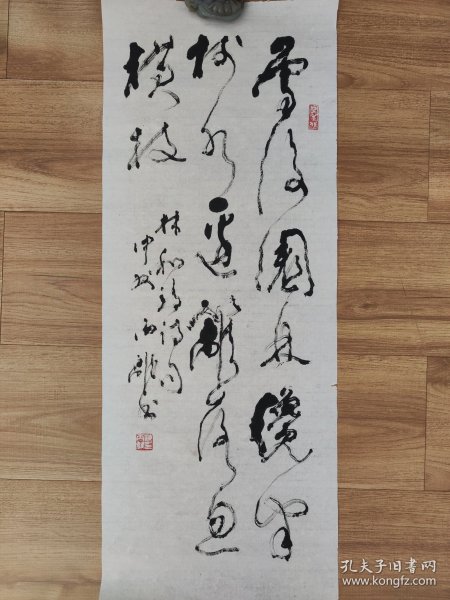 雪後園林纔半
樹水邊籬落忽
橫枝
林和靖诗句
书
孔夫子旧书网
www.kongfz.com